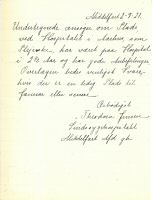 Middelfart 2-9-21.
Undertegnede ansøger om Plads
ved Hospitalet i Aarhus som
Elev, har været paa Hospital
i 2½ Aar og har gode Anbefalinger
Overlægen bedes venligst svare
hvis der er en ledig Plads til
Januar eller senere.
Ærbødigst
Theodora Jensen
Sindssygehospitalet
Middelfart